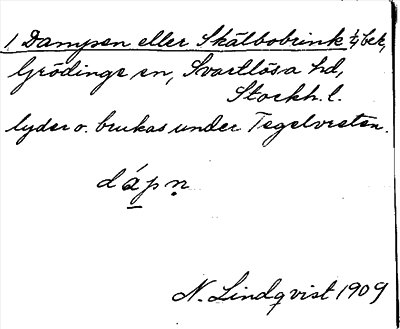 1 Dampen eller Skälbobrink ½ bek,
Grödinge sn, Svartlösa hd,
Stockh. l.
lyder o. brukas under Tegelvreten.
dápn
N. Lindqvist 1909